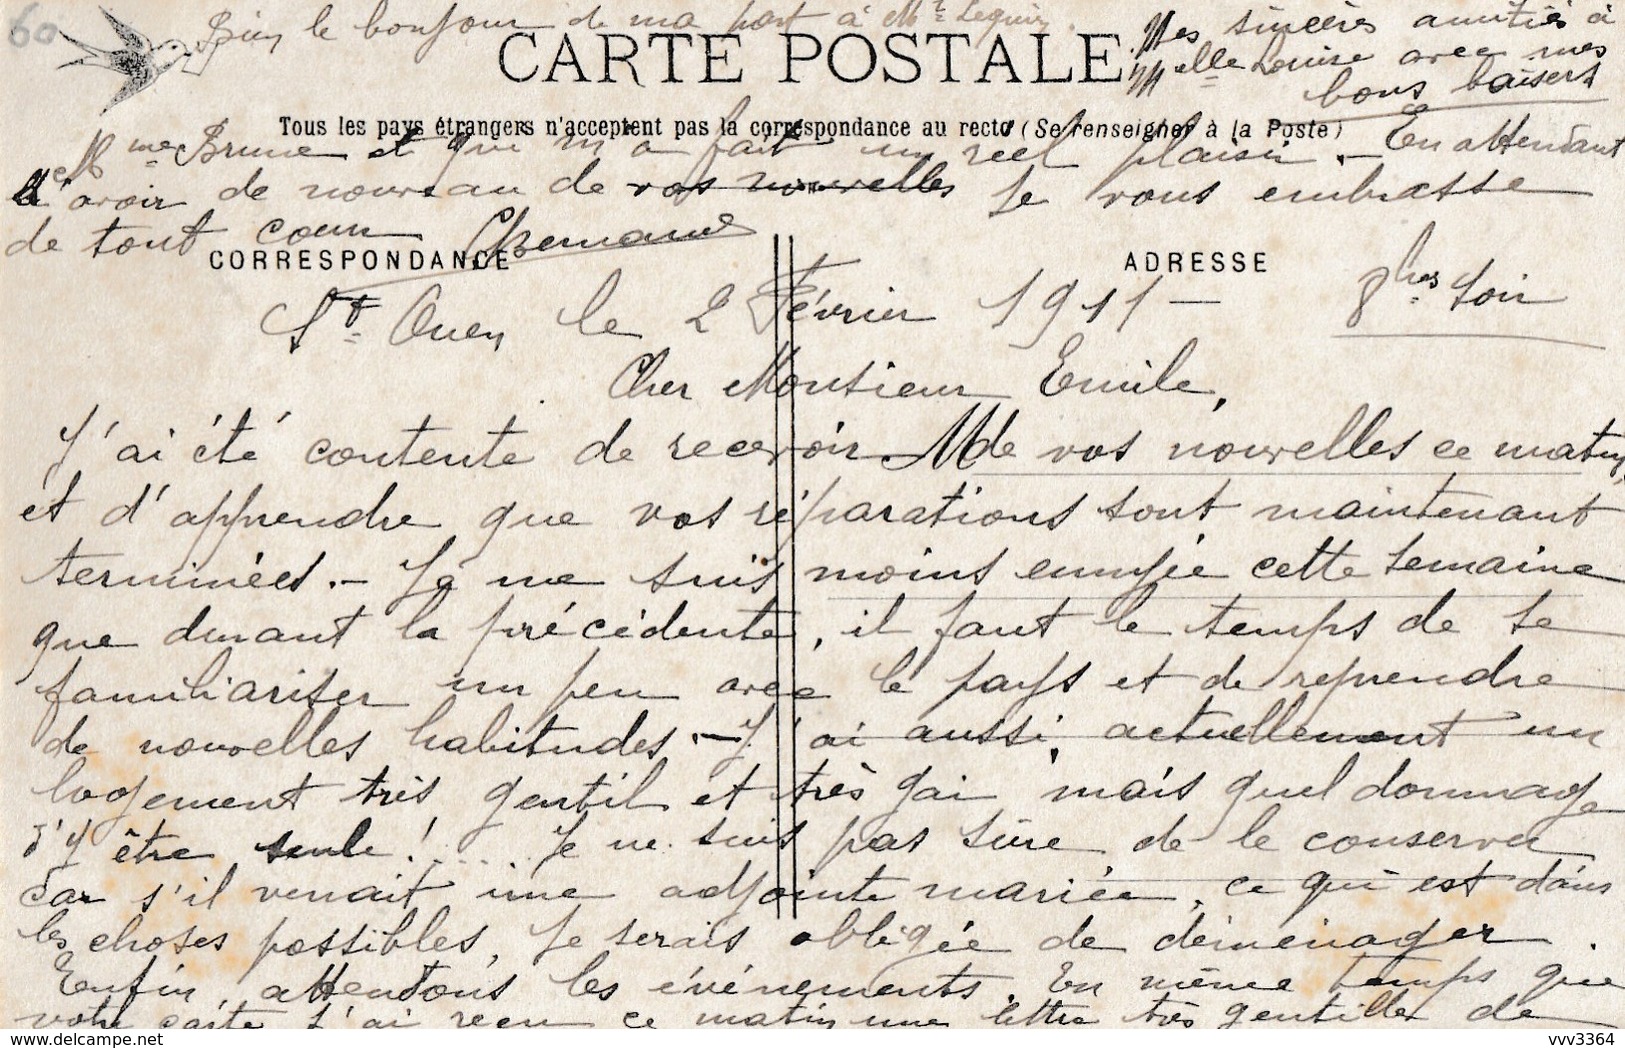 60
Bien le bonjour de ma part à Mr Lequin.
Mes sincères amitiés à
Melle Louise avec mes
bons baisers
CARTE POSTALE
Tous les pays étrangers n'acceptent pas la correspondance au recto (Se renseigner à la Poste)
Mme Brune et qui m'a fait un réel plaisir. — En attendant
d'avoir de nouveau de vos nouvelles je vous embrasse
de tout coeur
CORRESPONDANCE
ADRESSE
St Ouen le 2 Février 1911 — 8hes soir
Cher Monsieur Emile,
J'ai été contente de recevoir de vos nouvelles ce matin,
et d'apprendre que vos réparations sont maintenant
terminées. — Je me suis moins ennuyée cette semaine
que durant la précédente, il faut le temps de se
familiariser un peu avec le pays et de reprendre
de nouvelles habitudes. — J'ai aussi, actuellement un
logement très gentil et très gai, mais quel dommage
d'y être seule !..... Je ne suis pas sûre de le conserver
car s'il venait une adjointe mariée, ce qui est dans
les choses possibles, je serais obligée de déménager.
Enfin, attendons les événements. En même temps que
votre carte j'ai reçu ce matin une lettre très gentille de
vvv3364